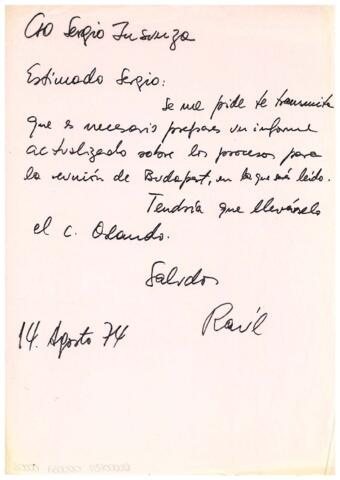 Cro Sergio Insunza
Estimado Sergio:
Se me pide te transmita
que es necesario prepares un informe
actualizado sobre los procesos para
la reunión de Budapest, en la que será leído.
Tendría que llevárselo
el c. Orlando.
Saludos
Raúl
14. Agosto 74